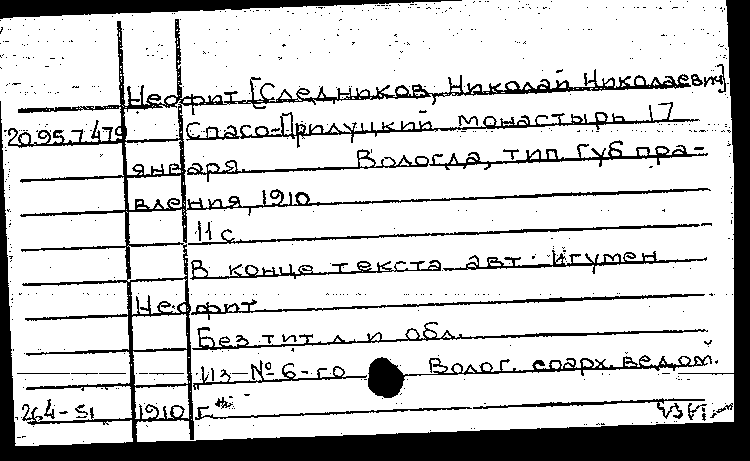 Неофит [Следников, Николай Николаевич]
20.95.7479 Спасо-Прилуцкий монастырь 17
января. Вологда, тип. Губ. пра-
вления, 1910.
11 с.
В конце текста авт.: Игумен
Неофит
Без тит. л. и обл.
Из № 6-го Волог. епарх. ведом.
264-51 1910 г.